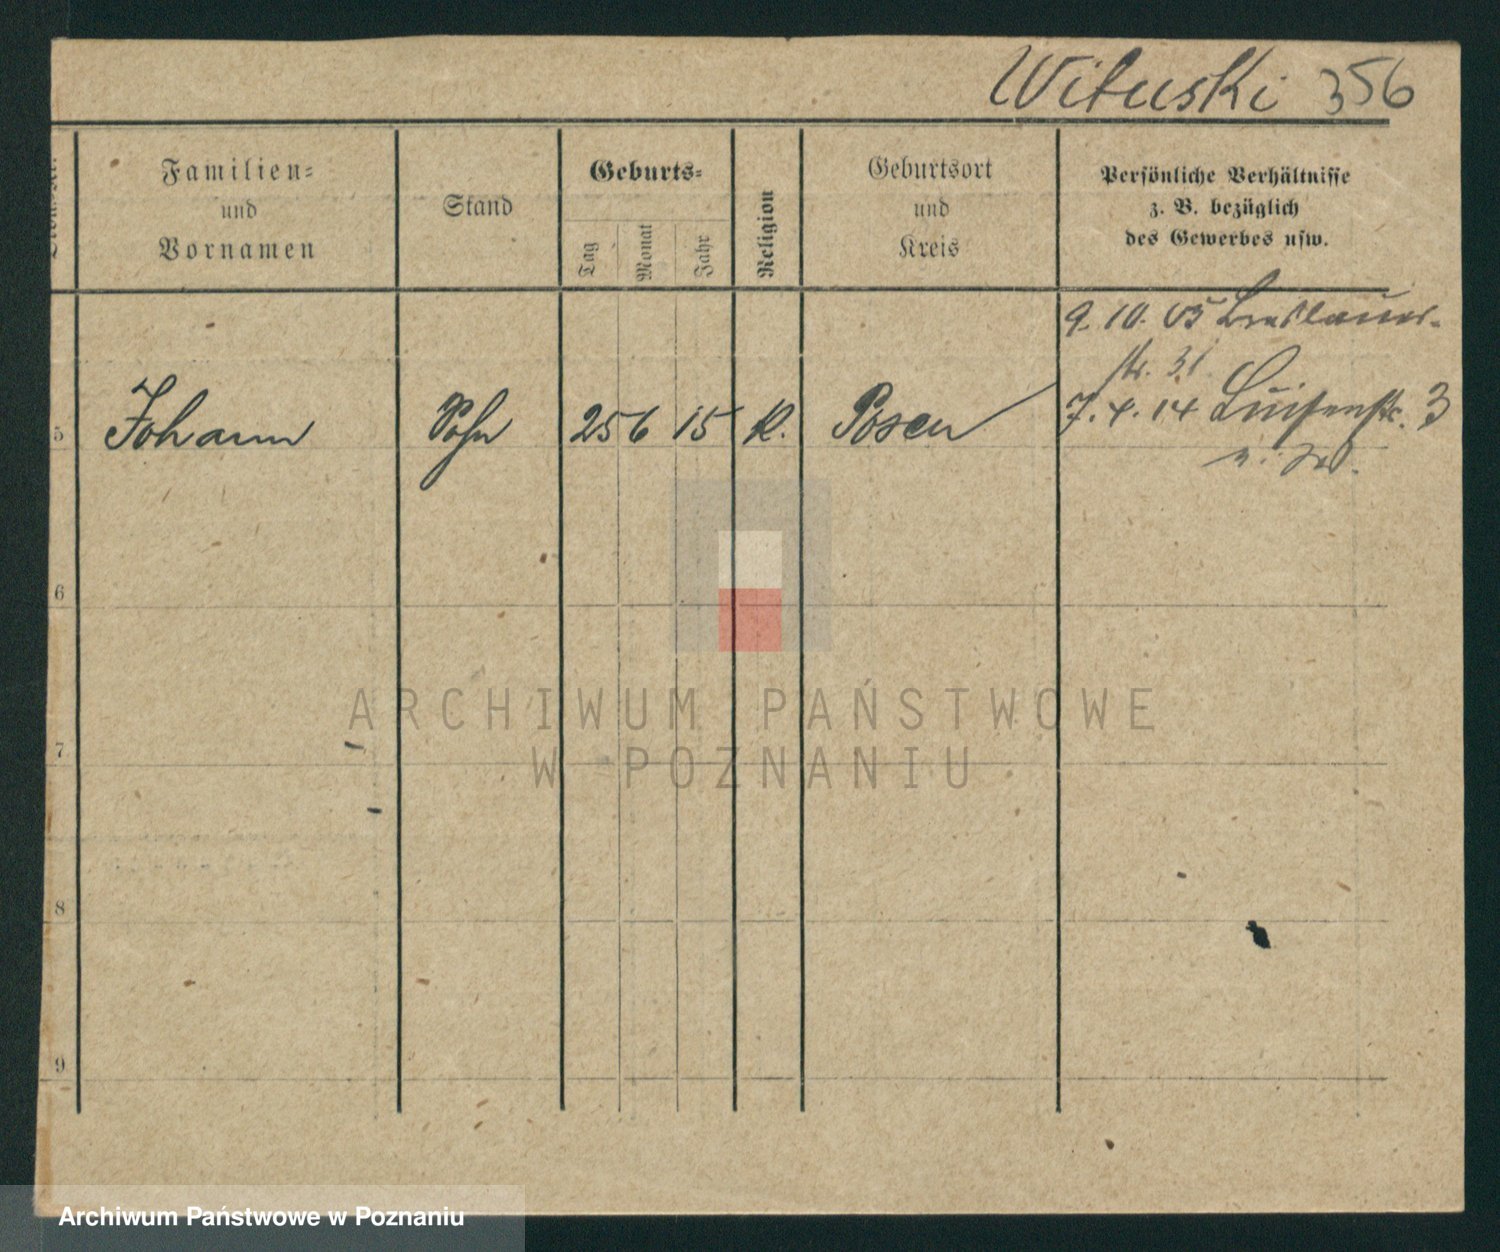 Wituski 356
Familien=
und
Vornamen
Stand
Geburts=
Tag
Monat
Jahr
Religion
Geburtsort
und
Kreis
Persönliche Verhältnisse
z. B. bezüglich
des Gewerbes usw.
9. 10. 05 Breslauer-
str. 31
5 Johann Sohn 25 6 15 K. Posen 7. 4. 14 Luisenstr. 3
6
7
8
9
ARCHIWUM PAŃSTWOWE
W POZNANIU
Archiwum Państwowe w Poznaniu